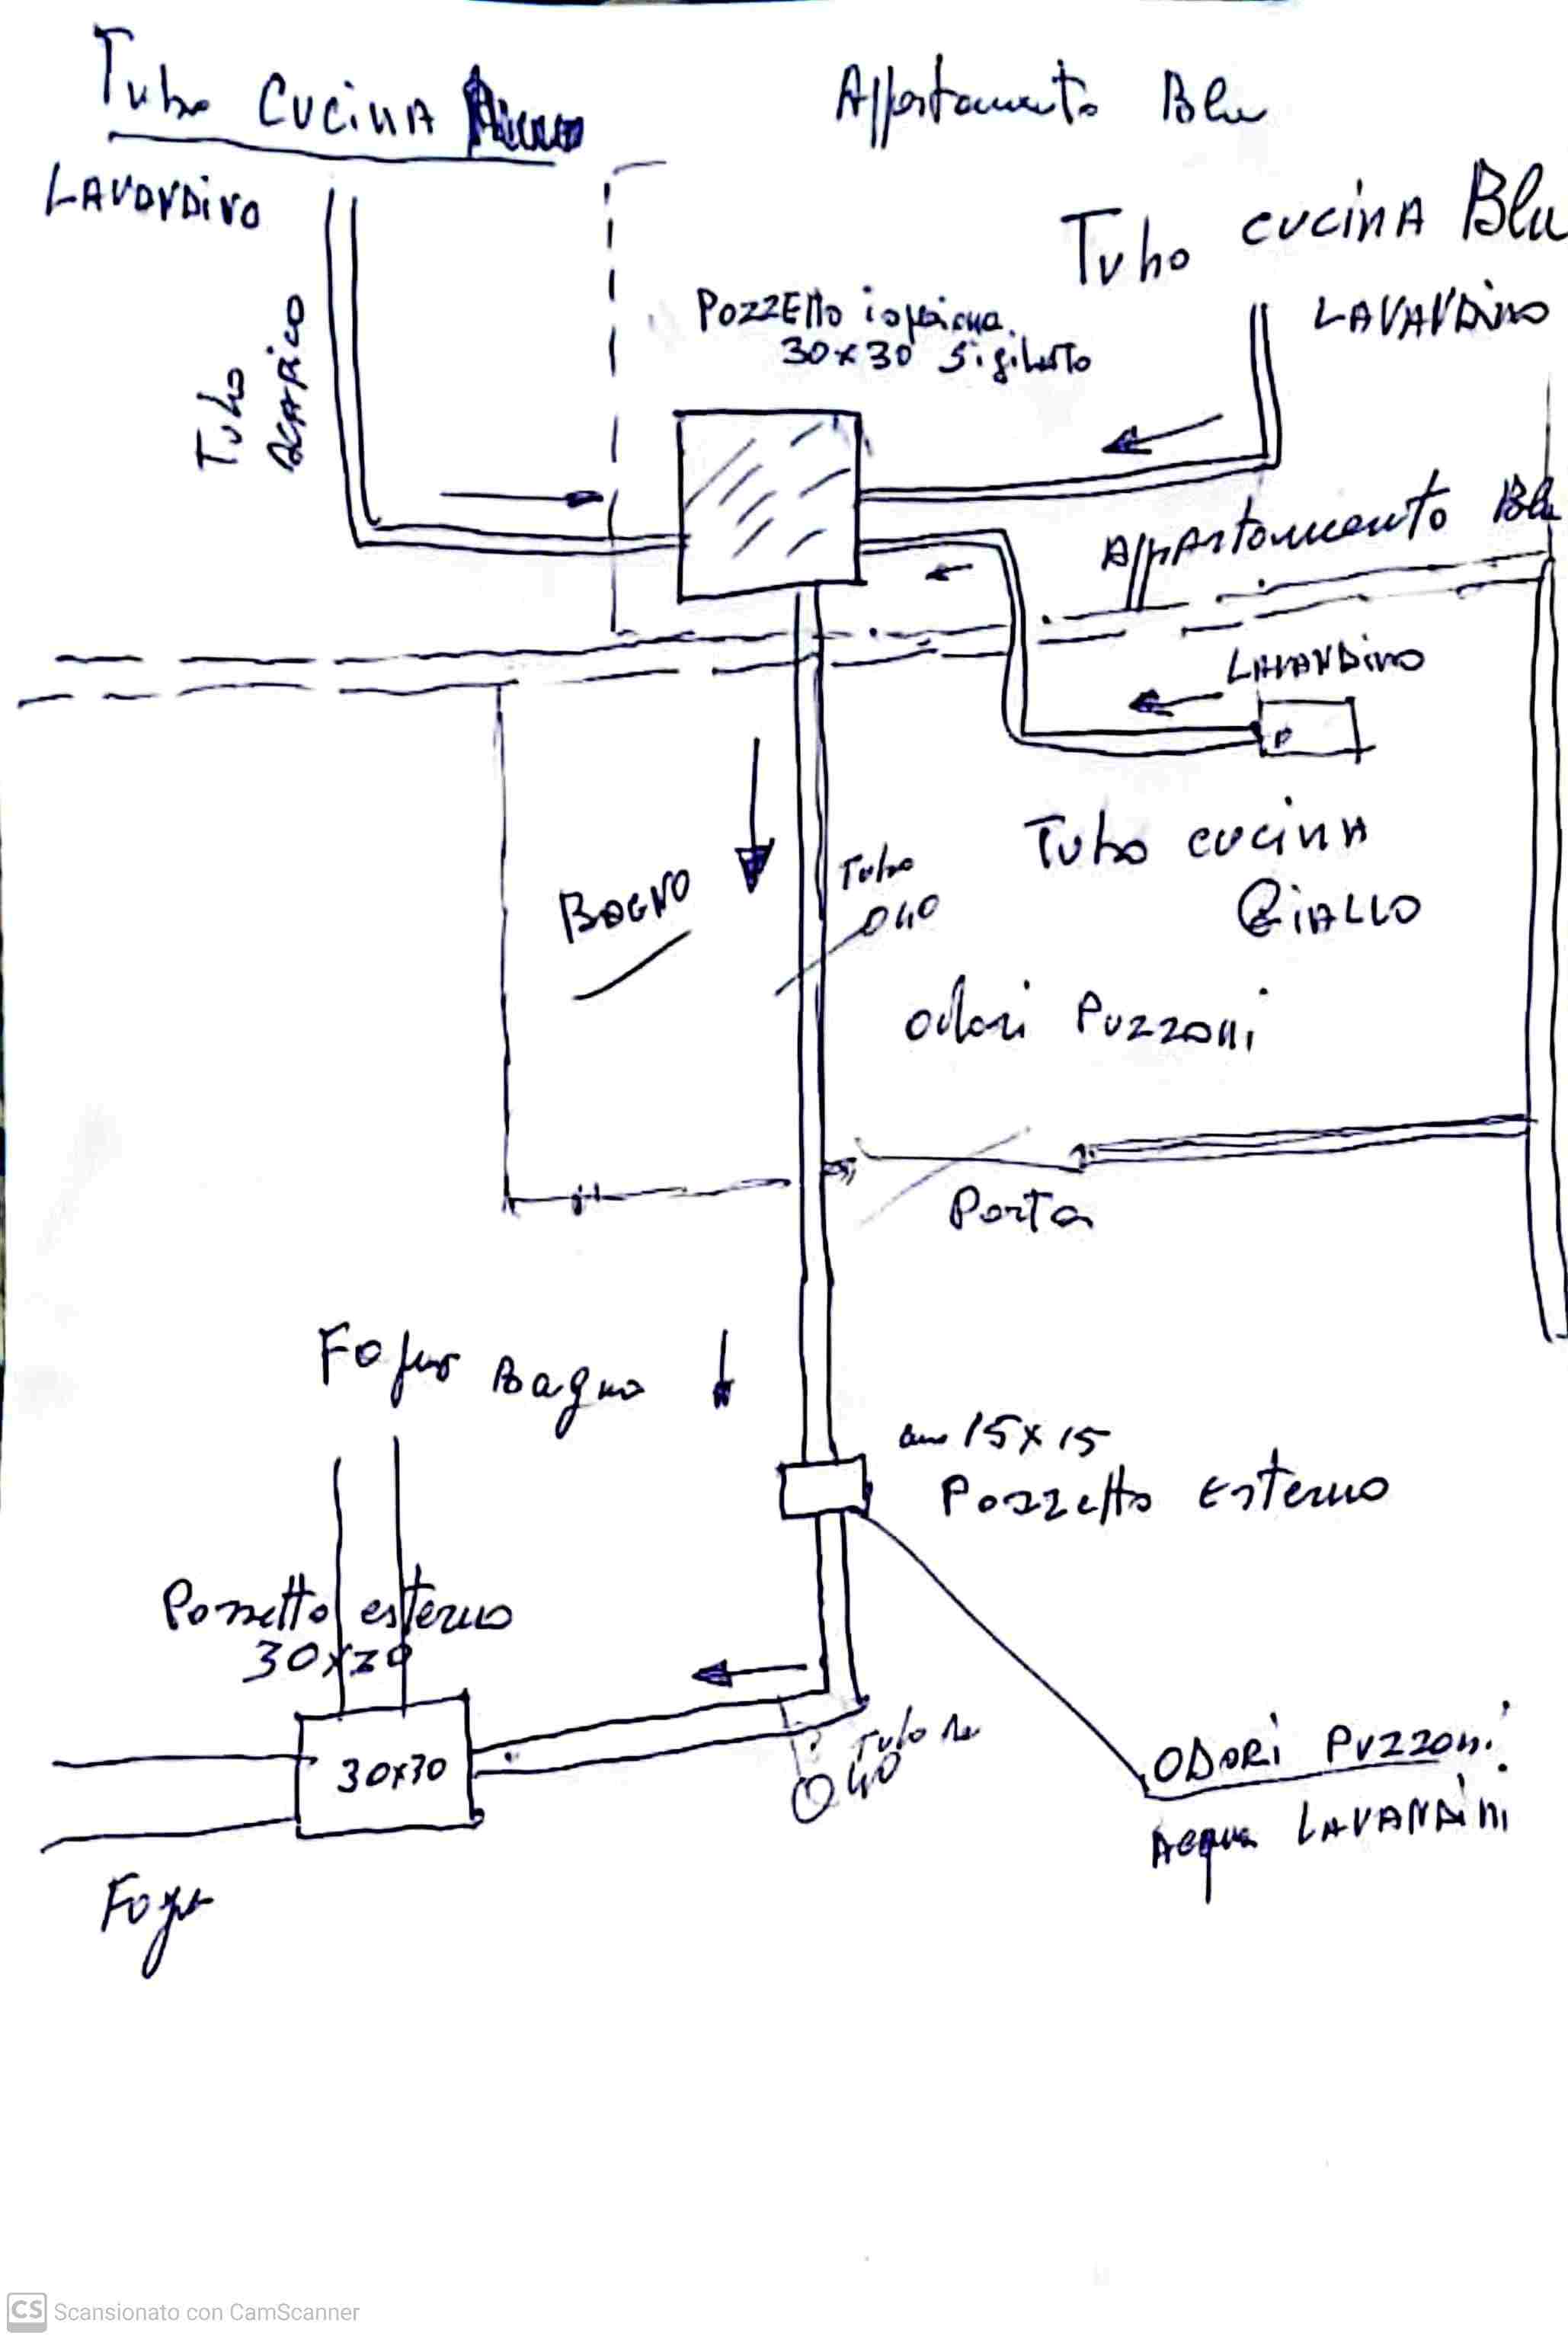 Tubo Cucina
Appartamento Blu
LAVANDINO
Tubo cucina Blu
LAVANDINO
POZZEtto ispezione
30x30 Sigillato
Tubo
SCARICO
Appartamento Blu
LAVANDINO
Tubo cucina
GIALLO
BAGNO
Tubo
Ø40
Odori Puzzoni
Porta
Bagno
15x15
Pozzetto Esterno
Pozzetto esterno
30x30
30x30
Tubo
Ø40
ODORI PUZZONI
Acqua LAVANDINI
CS Scansionato con CamScanner